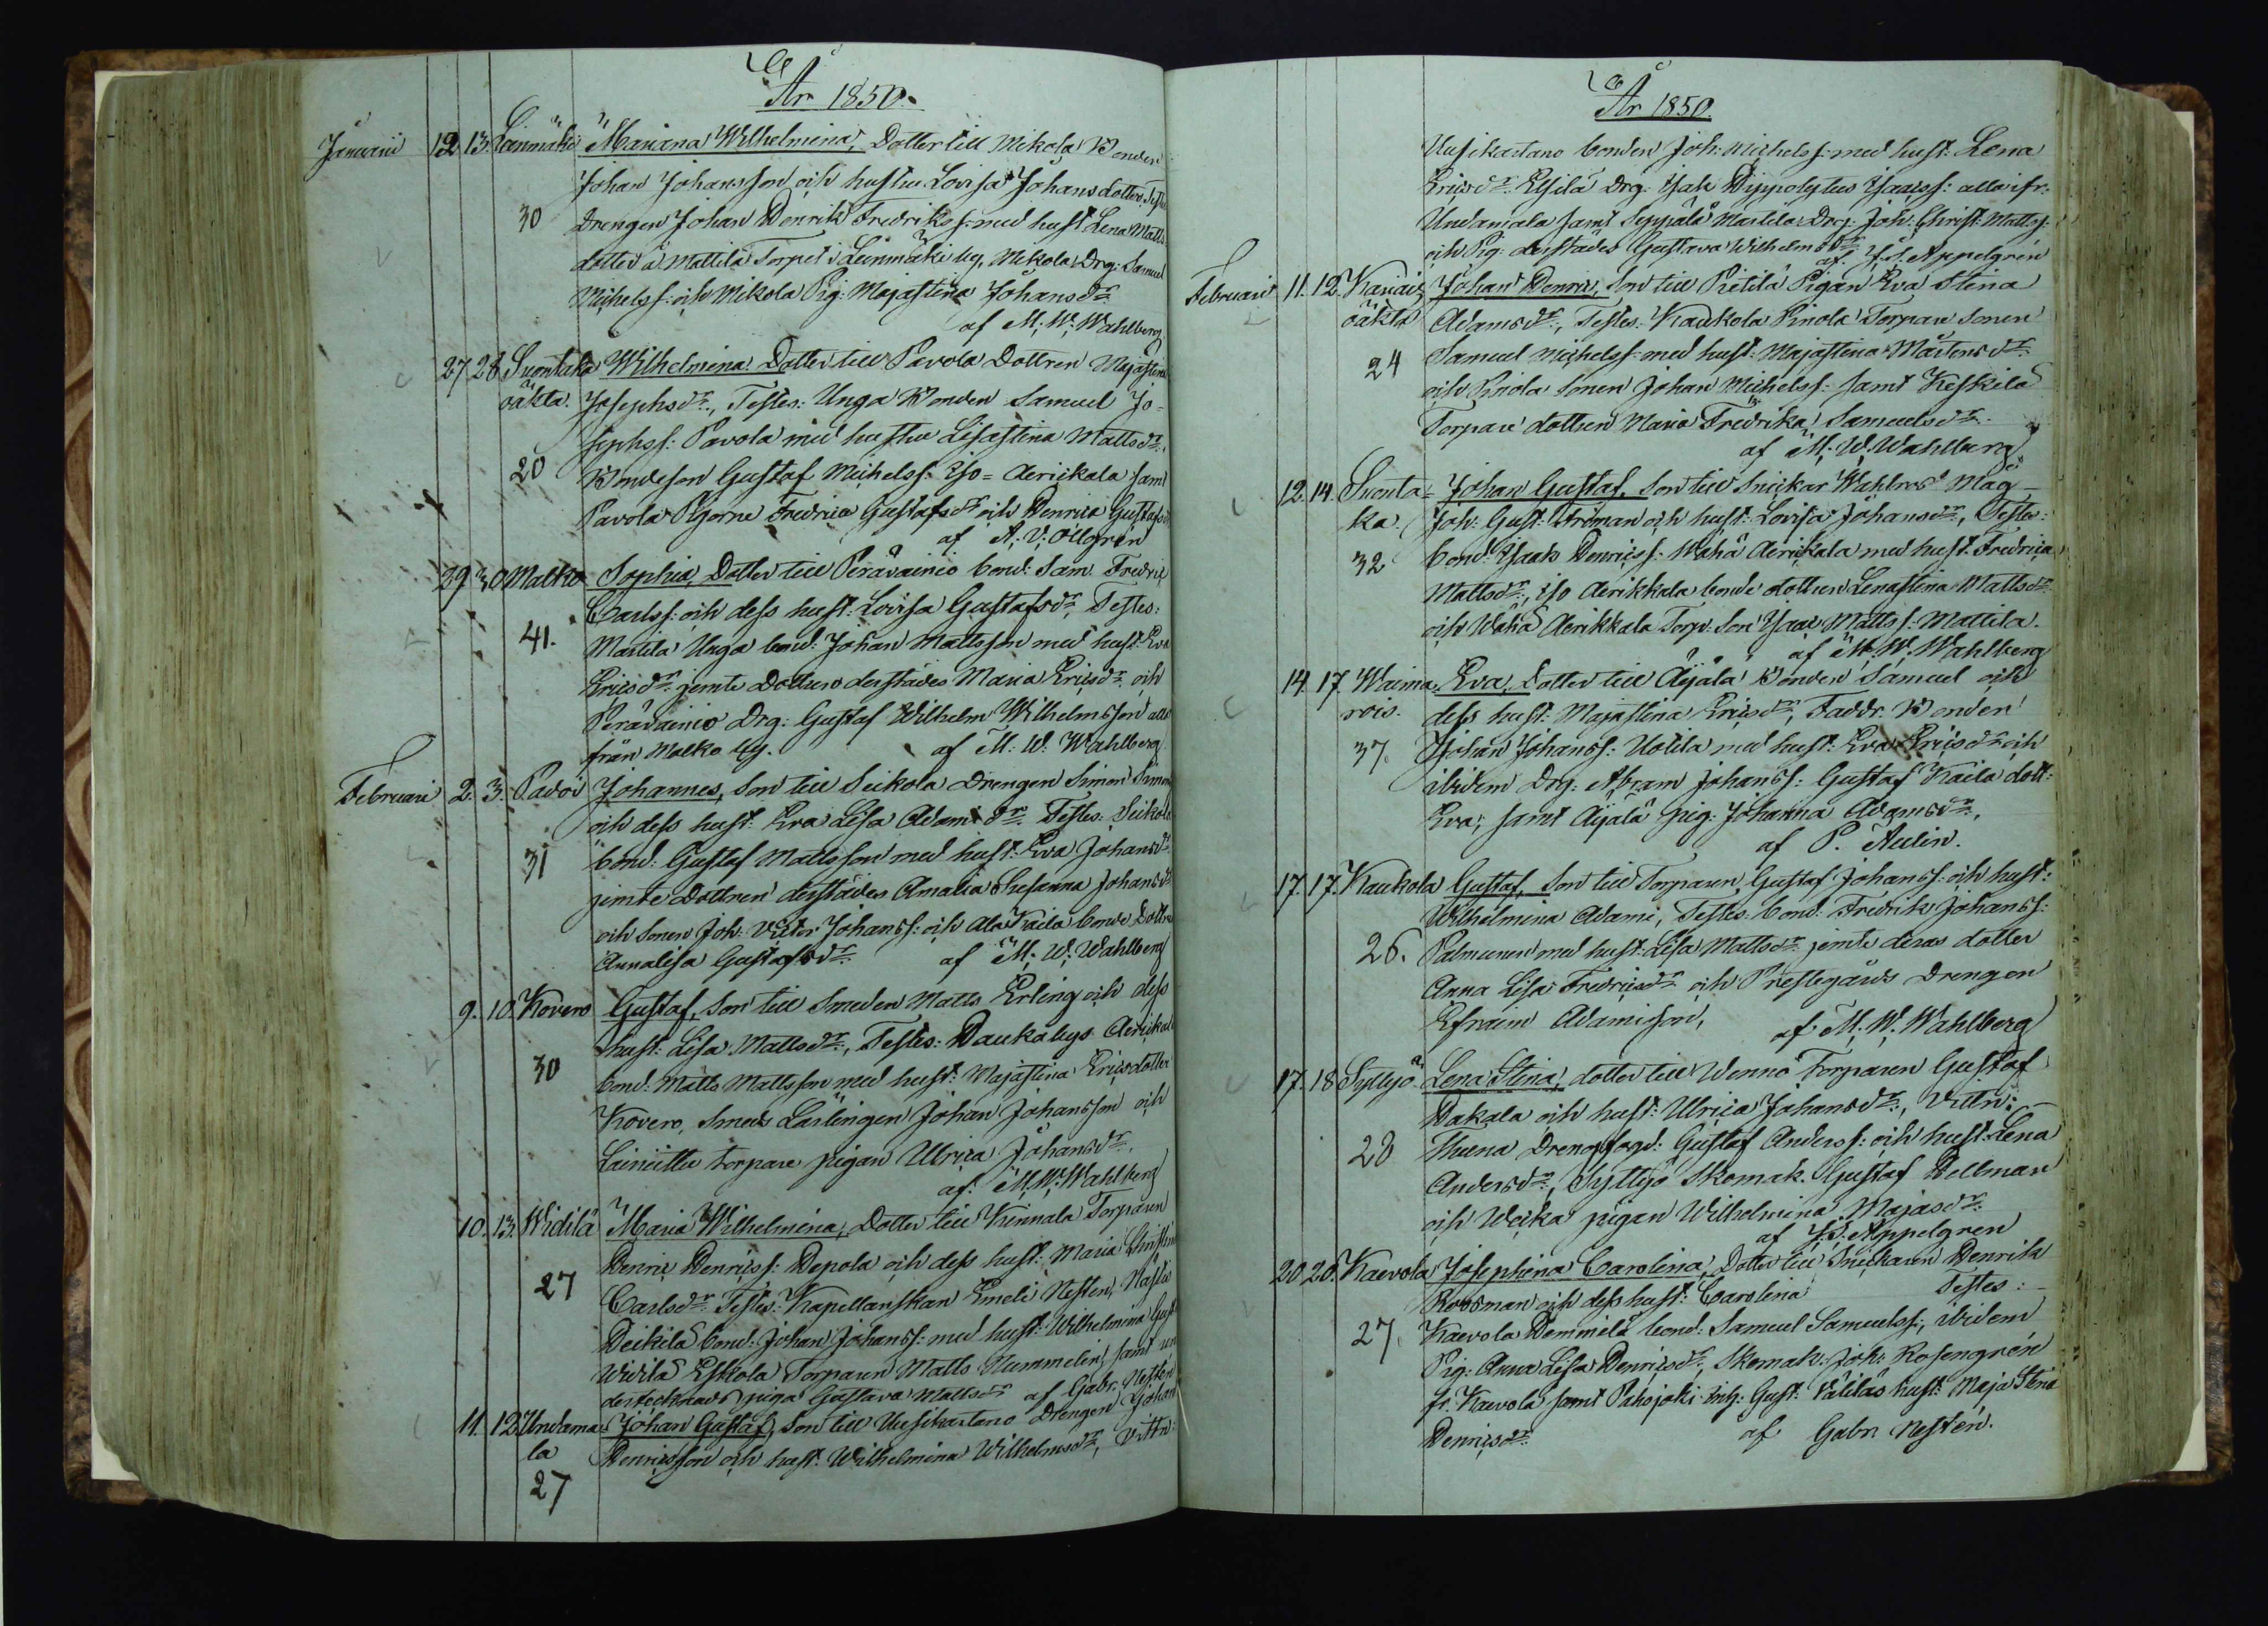 År 1850.
Januarii 12 13. Leinmäki Mariana Wilhelmina, Dotter till Mikola Bonden
Johan Johansson och hustru Lovisa Johansdotter, Test:
30 Drengen Johan Henrik Fredrikss: med hust. Lena Matts
dotter å Mattila Torpet i Leinmäki by, Mikola Drg: Samuel
Michelss: och Mikola Pig: Majastina Johansdr
af M: W: Wahlberg
27 28 Suontaka Wilhelmina Dotter till Pavola Dottren Majastina
oäkta. Josephsdr., Testes: Unga Bonden Samuel Jo-
sephss: Pavola med hustru Lisastina Mattsdr:,
20 Bondeson Gustaf Michelss: Iso-Aerickala samt
Pavola Pigorne Fredrica Gustafsdr och Henrica Gustafsd
af A: V: Ollgren
29 30 Malko Sophia, Dotter till Perävainio bond: Sam: Fredric
Carlss: och dess hust: Lovisa Gustafsdr, Testes:
41. Martila Unga bond: Johan Mattsson med hust: Eva
Ericsdr: jemte Dottren derstädes Maria Ericsdr: och
Perävainio Drg: Gustaf Wilhelm Wilhelmsson alla
från Malko by. af M: W: Wahlberg
Februari 2. 3. Padoi Johannes, Son till Seikola Drengen Simon Simons
och dess hust: Eva Lisa Adamsdr: Testes: Seikola
31 bond: Gustaf Mattsson med hust: Eva Johansdr
jemte Dottren derstädes Amalia Susanna Johansdr
och Sonen Joh: Victor Johanss: och Ala Kaila bonde Dottren
Annalisa Gustafsdr: af M: W: Wahlberg
9. 10. Kovero Gustaf, Son till Smeden Matts Erling och dess
hust: Lisa Mattsdr:, Testes: Haukaby Aerickala
30 bond: Matts Mattsson med hust: Majastina Ericsdotter
Kovero, Smeds Lärlingen Johan Johansson och
torpare pigan Ulrica Johansdr:
af: M: W: Wahlberg
10. 13. Widilä Maria Wilhelmina, Dotter till Kinnala Torparen
Henric Henricss: Hepola och dess hust: Maria Christina
27 Carlsdr: Testes: Kapellanskan Emeli Nesten,
Heikilä bond: Johan Johanss: med hust: Wilhelmina Gust
Widilä Eskola Torparen Matts Nummelin, samt un
dertecknads piga Gustava Mattsdr af Gabr: Nesten
11. 12 Undama Johan Gustaf, Son till Uusikartano Drengen Johan
la Henricsson och hust: Wilhelmina Wilhelmsdr:, Vittn:
27
År 1850.
Uusikartano bonden Joh: Michelss: med hust: Lena
Ericsdr: Elfilä Drg: Isak Hippolytus Isacss: alla ifr:
Undamala samt Seppälä Martila Drg: Joh: Christ: Mattss:
och Pig: derstädes Gustava Wilhelmsdr af: J. S. Appelgren
Februari 11. 12. Kariais Johan Henric, Son till Pietilä Pigan Eva Stina
oäkta Adamsdr:, Testes: Kaukola Pinola Torpare Sonen
24 Samuel Michelss: med hust: Majastina Mårtensdr:
och Pinola Sonen Johan Michelss: samt Keskilä
Torpare dottren Maria Fredrika Samuelsdr:
af M: W: Wahlberg
12. 14. Suonta= Johan Gustaf, Son till Snickar Wahlros Måg
ka. Joh: Gust: Ströman och hust: Lovisa Johansdr:, Testes:
32 bond: Isaak Henricss: Wähä Aerickala med hust: Fredrica
Mattsdr:, Iso Aerikkala bonde dottren Lenastina Mattsdr:
och Wähä Aerikkala Torp: Son Isac Mattss: Mattila.
af M: W: Wahlberg
14. 17. Waima Eva, Dotter till Äijälä Bonden Samuel och
rois. dess hust: Majastina Ericsdr:, Faddr. Bonden
37. Johan Johanss: Uotila med hust: Eva Ericsdr: och
ibidem Drg: Abram Johanss: Gustaf Kaila dott:
Eva, samt Äijälä pig: Johanna Adamsdr:,
af P. Aulin.
17. 17. Kaukola Gustaf, Son till Torparen Gustaf Johanss: och hust:
Wilhelmina Adami, Testes: bond: Fredrik Johanss:
26. Palmunen med hust: Lisa Mattsdr: jemte deras dotter
Anna Lisa Fredricsdr och Prestegårds Drengen
Efraim Adamsson, af M: W: Wahlberg
17. 18 Syttyjä Lena Stina, dotter till Wenno Torparen Gustaf
Hakala och hust: Ulrica Johansdr:, Vittn: -
28 Huena Drengfogd: Gustaf Anderss: och hust: Lena
Andersdr:, Syttyjä Skomak. Gustaf Hellman
och Weika pigan Wilhelmina Majasdr:
af J. S. Appelgren
20 20. Kaevola Josephina Carolina, Dotter till Snickaren Henrik
Rossman och dess hust: Carolina Testes: -
27. Kaevola Hemmilä bond: Samuel Samuelss:, ibidem
Pig: Anna Lisa Henricsdr:, Skomak: Joh: Rosengren
fr: Kaevola samt Pahojoki Gust: Välilas hust: Maja Stina
Henricsdr: af Gabr. Nesten.